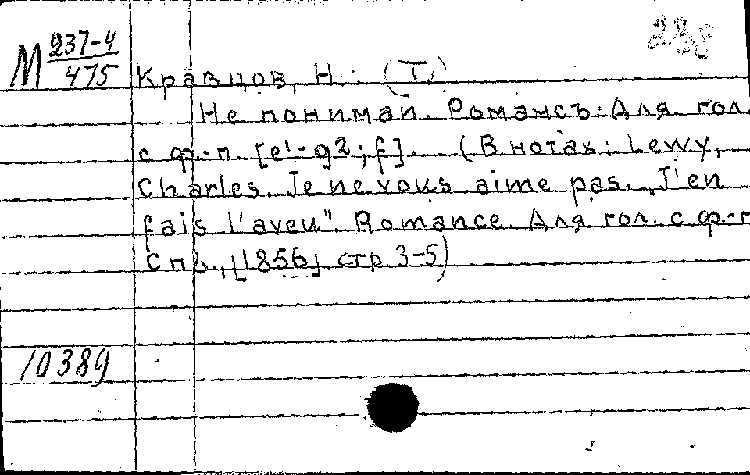 М 237-4
475
Кравцов, Н. (Т.)
Не понимай. Романсъ. Для гол.
с ф.-п. [e'-g2; f]. (В нотах: Lewy,
Charles. Je ne vous aime pas. „J'en
fais l'aveu". Romance. Для гол. с ф-п
Спб., [1856] стр 3-5)
10389